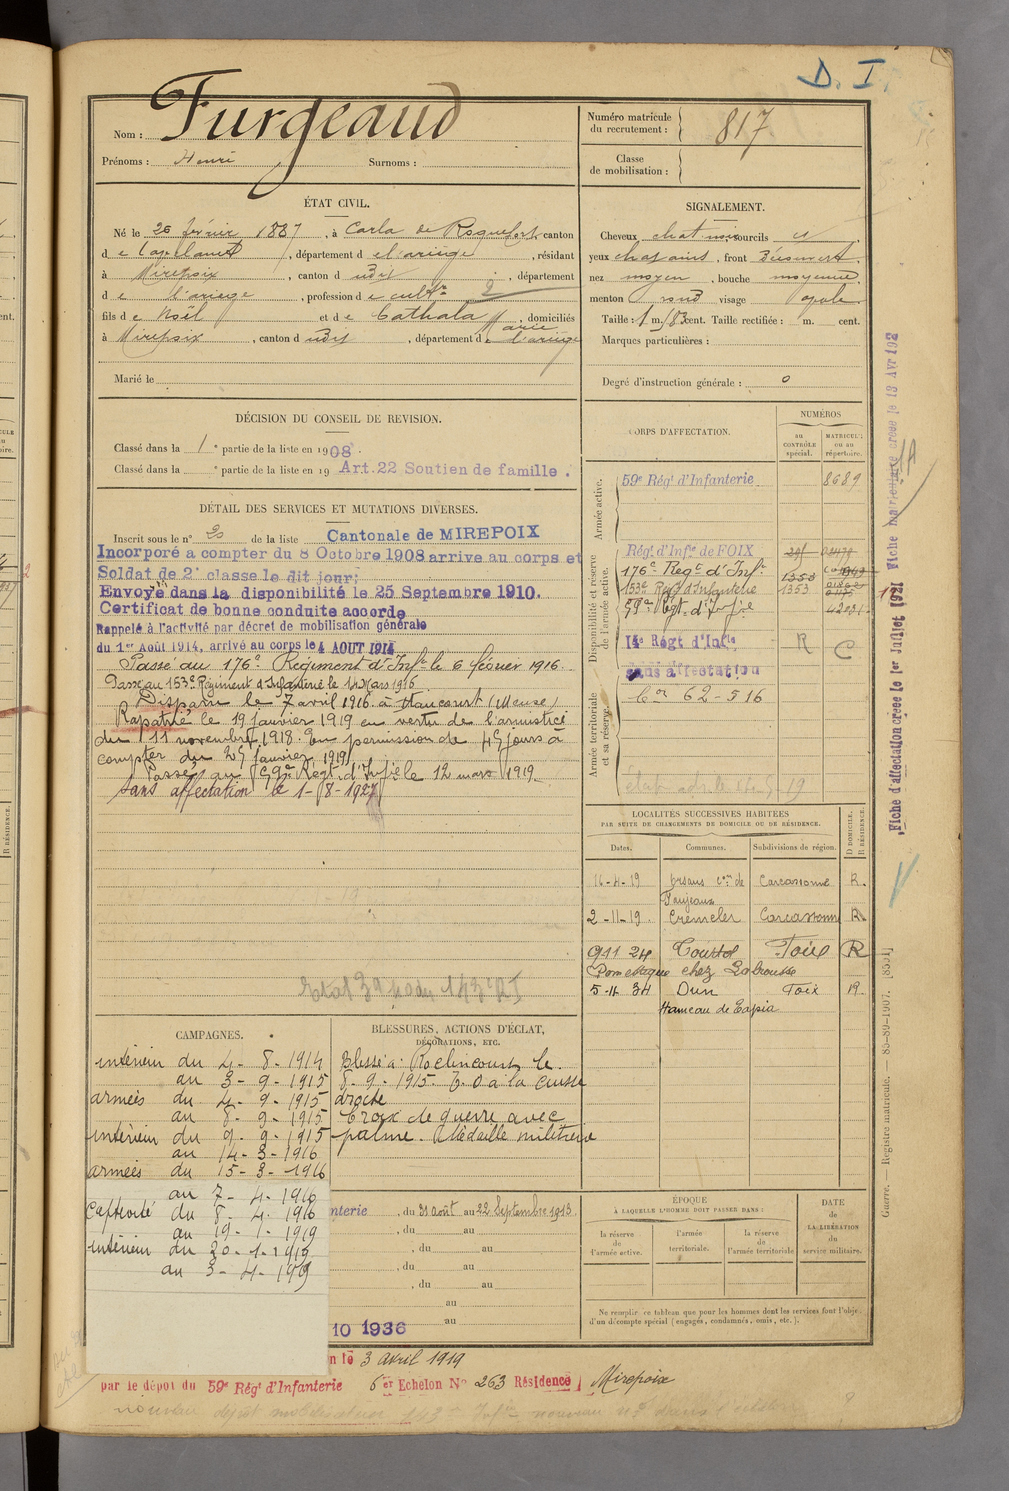 D. I.
Nom : Furgeaud
Prénoms : Henri Surnoms :
Numéro matricule du recrutement : 817
Classe de mobilisation :
ÉTAT CIVIL.
Né le 26 février 1887, à Carla de Roquefort, canton
de Lavelanet, département de l'ariège, résidant
à Mirepoix, canton d udit, département
de l'ariege, profession de cultr 2
fils de Noël et de Cathala Marie, domiciliés
à Mirepoix, canton d udit, département de l'ariège
Marié le
SIGNALEMENT.
Cheveux chat nois sourcils id
yeux chatains, front Découvert.
nez moyen, bouche moyenne
menton rond visage ovale
Taille : 1 m. 83 cent. Taille rectifiée : m. cent.
Marques particulières :
Degré d'instruction générale : 0
DÉCISION DU CONSEIL DE REVISION.
Classé dans la 1e partie de la liste en 1908.
Classé dans la e partie de la liste en 19 Art.22 Soutien de famille.
DÉTAIL DES SERVICES ET MUTATIONS DIVERSES.
Inscrit sous le n° 20 de la liste Cantonale de MIREPOIX
Incorporé à compter du 8 Octobre 1908 arrive au corps et
Soldat de 2e classe le dit jour;
Envoyé dans la disponibilité le 25 Septembre 1910.
Certificat de bonne conduite accordé
Rappelé à l'activité par décret de mobilisation générale
du 1er Août 1914, arrivé au corps le 4 AOUT 1914
Passé au 176e Régiment d'Infie le 6 février 1916.
Passé au 153e Régiment d'Infanterie le 14 Mars 1916
Disparu le 7 avril 1916 à Haucourt (Meuse)
Rapatrié le 19 Janvier 1919 en vertu de l'armistice
du 11 novembre 1918. En permission de 45 jours à
compter du 25 Janvier 1919
Passé au 59e Régt. d'Infie le 12 mars 1919
sans affectation le 1-8-1927
CORPS D'AFFECTATION.
NUMÉROS
au CONTRÔLE spécial.
MATRICULE ou au répertoire.
Armée active.
59e Régt d'Infanterie 8689
Disponibilité et réserve de l'armée active.
Régt d'Infie de FOIX
176e Regt d'Infie 1353
153e Régt d'Infanterie 1353
59e Rgt. d'Infie 42001
14e Régt d'Infie R C
sans affectation
Armée territoriale et sa réserve.
62-516
LOCALITÉS SUCCESSIVES HABITÉES
PAR SUITE DE CHANGEMENTS DE DOMICILE OU DE RÉSIDENCE.
Dates. Communes. Subdivisions de région. D DOMICILE. R RÉSIDENCE.
16-4-19 Carcassonne R.
2-11-19. Carcassonne R.
9 11 24 Courtol Foix R
chez Labrousse
5-11-34 Dun Foix R.
Hameau de Tapia
CAMPAGNES.
intérieur du 4-8-1914
au 3-9-1915
armées du 4-9-1915
au 8-9-1915
intérieur du 9-9-1915
au 14-3-1916
armées du 15-3-1916
au 7-4-1916
Captivité du 8-4-1916
au 19-1-1919
intérieur du 20-1-1919
au 3-4-1919
BLESSURES, ACTIONS D'ÉCLAT, DÉCORATIONS, ETC.
Blessé à Roclincourt le
8-9-1915. E.O à la cuisse
droite
Croix de guerre avec
palme. Médaille militaire
nterie, du 31 août au 22 Septembre 1913.
, du au
, du au
, du au
, du au
au
au
10 1936
ÉPOQUE
À LAQUELLE L'HOMME DOIT PASSER DANS :
la réserve de l'armée active.
l'armée territoriale.
la réserve de l'armée territoriale
DATE de LA LIBÉRATION du service militaire.
Ne remplir ce tableau que pour les hommes dont les services font l'objet
d'un décompte spécial (engagés, condamnés, omis, etc.).
n le 3 avril 1919
par le dépôt du 59e Régt d'Infanterie 6er Echelon No 263 Résidence Mirepoix
Fiche d'affectation créée le 1er Juillet 1921
Fiche matriculaire créée le 13 Avr 192
Guerre. — Registre matricule. — 85-89-1907. [8551]